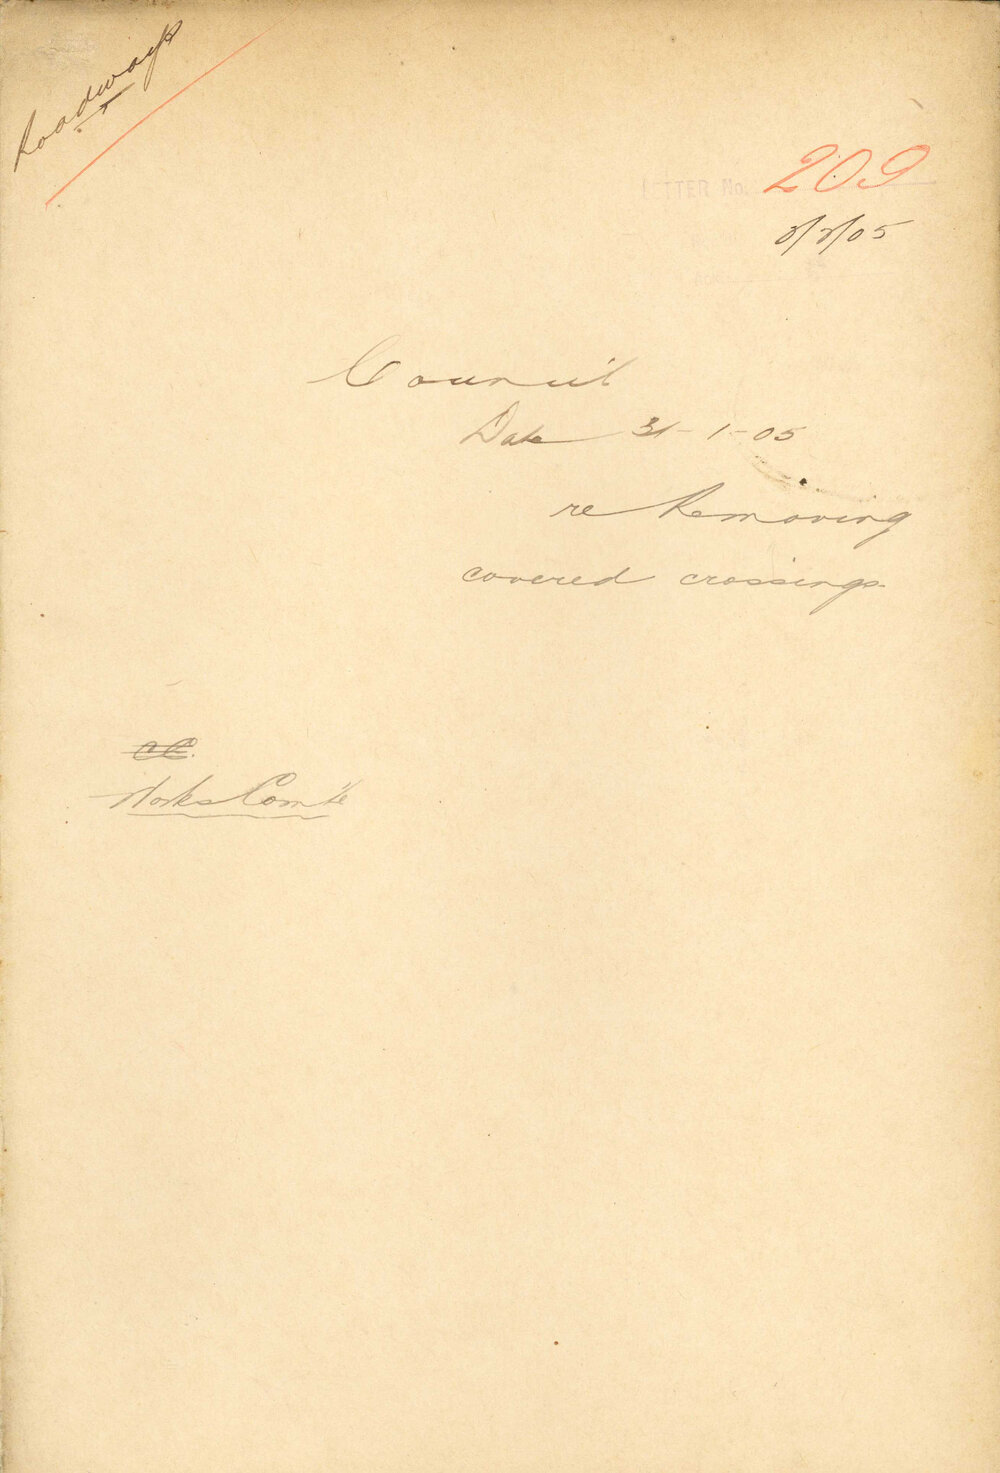 Roadways
LETTER No. 209
8/2/05
Council
Date 31-1-05
re Removing
covered crossings
CC.
Works Comte